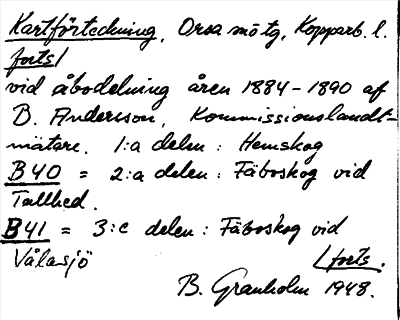 Kartförteckning, Orsa mötg, Kopparb. l.
forts/
vid åbodelning åren 1884-1890 af
B. Andersson, Kommissionslandt-
mätare. 1:a delen: Hemskog
B40 = 2:a delen: Fäboskog vid
Tallhed.
B41 = 3:e delen: Fäboskog vid
Våsasjö
/forts.
B. Granholm 1948.